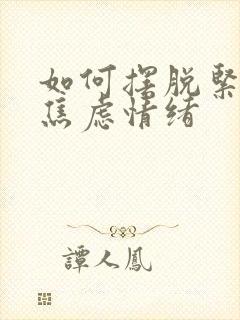 如何摆脱緊
焦虑情绪
譚人鳳